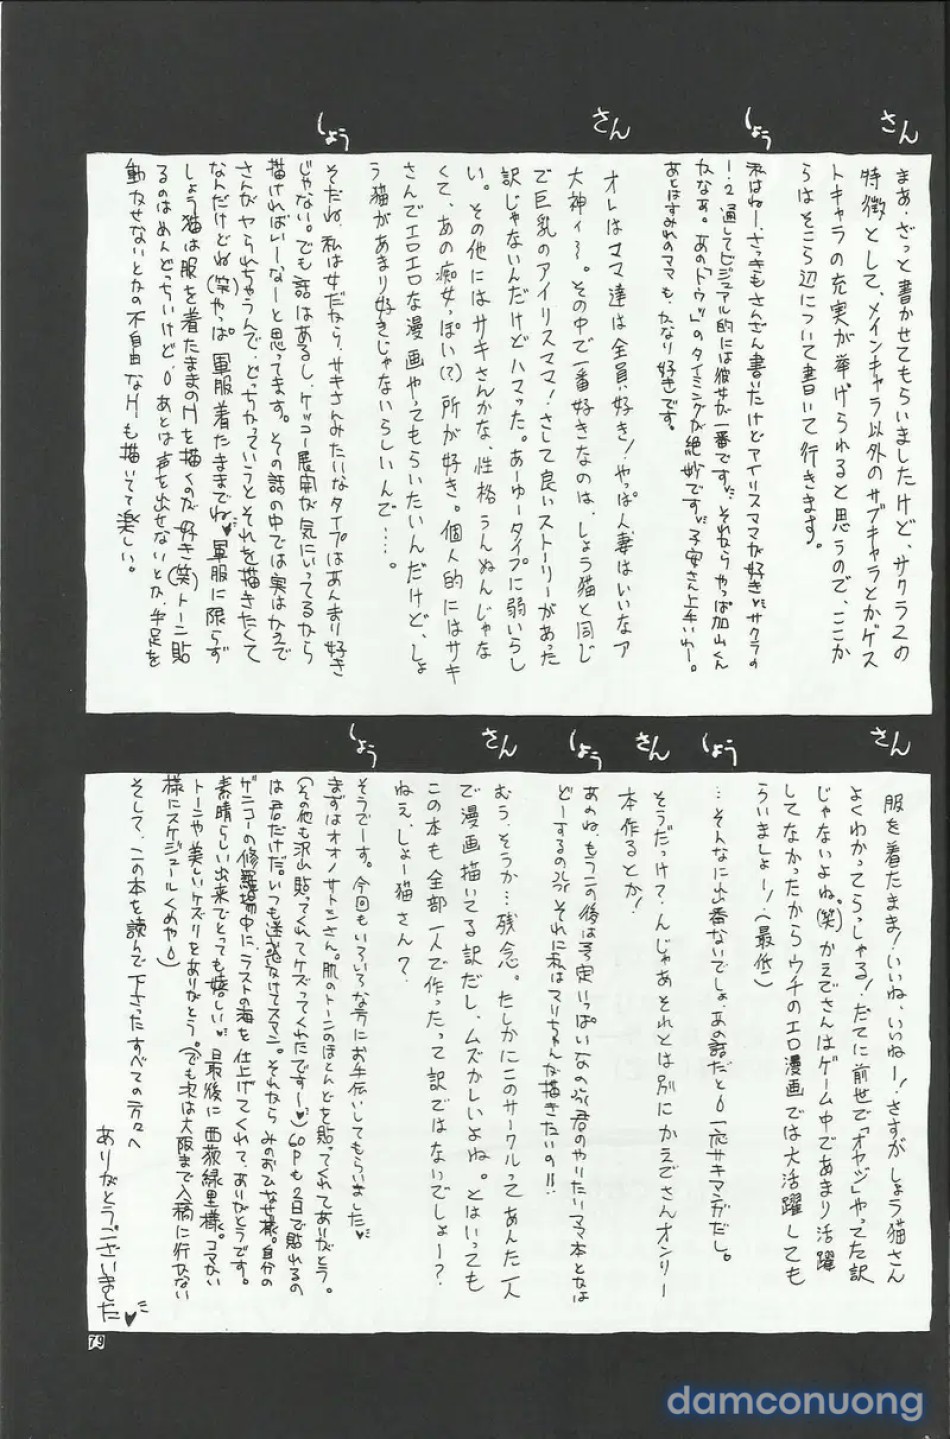 さん
まあ、ざっと書かせてもらいましたけど、サクラ2の
特徴として、メインキャラ以外のサブキャラとかゲス
トキャラの充実が挙げられると思うので、ここか
らはそこら辺について書いて行きます。
しょう
私はねー、さっきもさんざん書いたけどアイリスママが好き♥サクラの
1・2通してビジュアル的には彼女が一番です。それからやっぱ加山くん
かなあ。あの「とうっ」のタイミングが絶妙です。子安さん上手いわー。
あとはすみれのママも、かなり好きです。
さん
オレはママ達は全員好き!やっぱ人妻はいいなア
大神ィ〜。その中で一番好きなのは、しょう猫と同じ
で巨乳のアイリスママ!さして良いストーリーがあった
訳じゃないんだけどハマった。あーゆータイプに弱いらし
い。その他にはサキさんかな、性格うんぬんじゃな
くて、あの痴女っぽい(?)所が好き。個人的にはサキ
さんでエロエロな漫画やってもらいたいんだけど、しょ
う猫があまり好きじゃないらしいんで…。
しょう
そだね、私は女だから、サキさんみたいなタイプはあんまり好き
じゃない。でも話はあるし、ケッコー展開が気にいってるから
描ければいーなーと思ってます。その話の中では実はかえで
さんがヤられちゃうんで、どっちかっていうとそれを描きたくて
なんだけどね(笑)やっぱ軍服着たままでね♥軍服に限らず
しょう猫は服を着たままのHを描くのが好き(笑)トーン貼
るのはめんどっちいけど。あとは声を出せないとか、手足を
動かせないとかの不自由なHも描いてて楽しい。
さん
服を着たまま!いいね、いいねー!さすがしょう猫さん
よくわかってらっしゃる!だてに前世で「オヤジ」やってた訳
じゃないよね。(笑)かえでさんはゲーム中であまり活躍
してなかったからウチのエロ漫画では大活躍しても
らいましょー!(最低)
しょう
…そんなに出番ないでしょ、あの話だと。一応サキマンガだし。
さん
そうだっけ?んじゃあそれとは別にかえでさんオンリー
本作るとか!
しょう
あのね、もうこの後は予定いっぱいなの。君のやりたいママ本とかは
どーするの。それに私はマリちゃんが描きたいの!!
さん
むう、そうか…残念。たしかにこのサークルってあんた一人
で漫画描いてる訳だし、ムズかしいよね。とはいっても
この本も全部一人で作ったって訳ではないでしょー?
ねえ、しょー猫さん?
しょう
そうでーす。今回もいろいろな方にお手伝いしてもらいました♥
まずはオオノサトシさん。肌のトーンのほとんどを貼ってくれてありがとう。
(その他も沢山貼ってくれてケズってくれたです〜♥)60Pも2日で貼れるの
は君だけだ。いつも迷惑かけてスマン。それからみのおひなせ様。自分の
ゲンコーの修羅場中に、ラストの海を仕上げてくれて、ありがとうです。
素晴らしい出来でとっても嬉しい♥最後に西荻緑里様。コマかい
トーンや美しいケズリをありがとう。(でも次は大阪まで入稿に行かない
様にスケジュールくめや)
そして、この本を読んで下さったすべての方々へ
ありがとうございました♥
79
damconuong